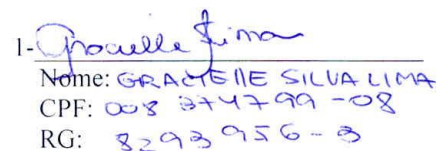 1- Gracielle Lima
Nome: GRACIELLE SILVA LIMA
CPF: 008 374799-08
RG: 8293956-3